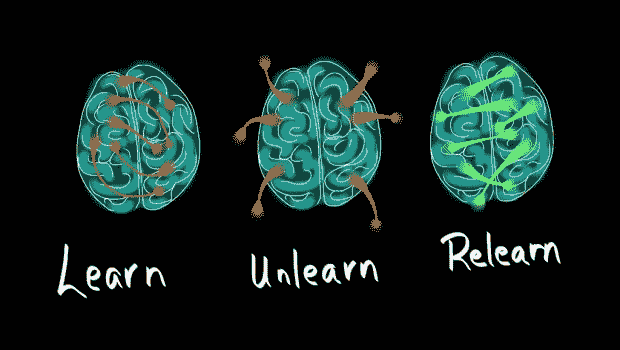 Learn
Unlearn
Relearn